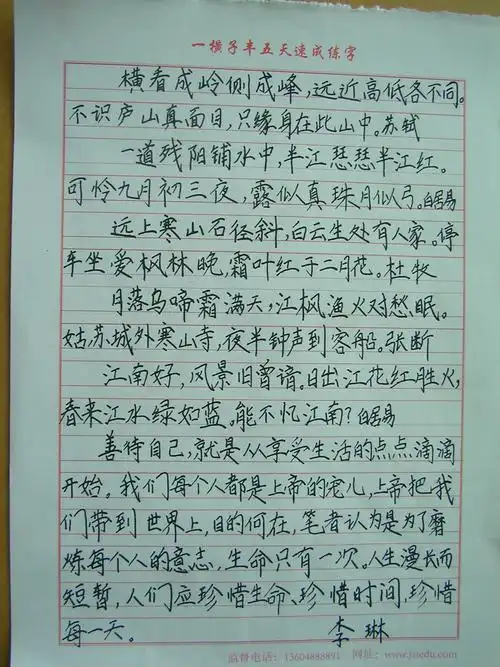 一横子丰五天速成练字
横看成岭侧成峰,远近高低各不同。
不识庐山真面目,只缘身在此山中。苏轼
一道残阳铺水中,半江瑟瑟半江红。
可怜九月初三夜,露似真珠月似弓。白居易
远上寒山石径斜,白云生处有人家。停
车坐爱枫林晚,霜叶红于二月花。杜牧
月落乌啼霜满天,江枫渔火对愁眠。
姑苏城外寒山寺,夜半钟声到客船。张断
江南好,风景旧曾谙。日出江花红胜火,
春来江水绿如蓝。能不忆江南?白居易
善待自己,就是从享受生活的点点滴滴
开始。我们每个人都是上帝的宠儿,上帝把我
们带到世界上,目的何在,笔者认为是为了磨
炼每个人的意志,生命只有一次。人生漫长而
短暂,人们应珍惜生命、珍惜时间,珍惜
每一天。 李琳
监督电话:13604888891 网址:www.jinedu.com